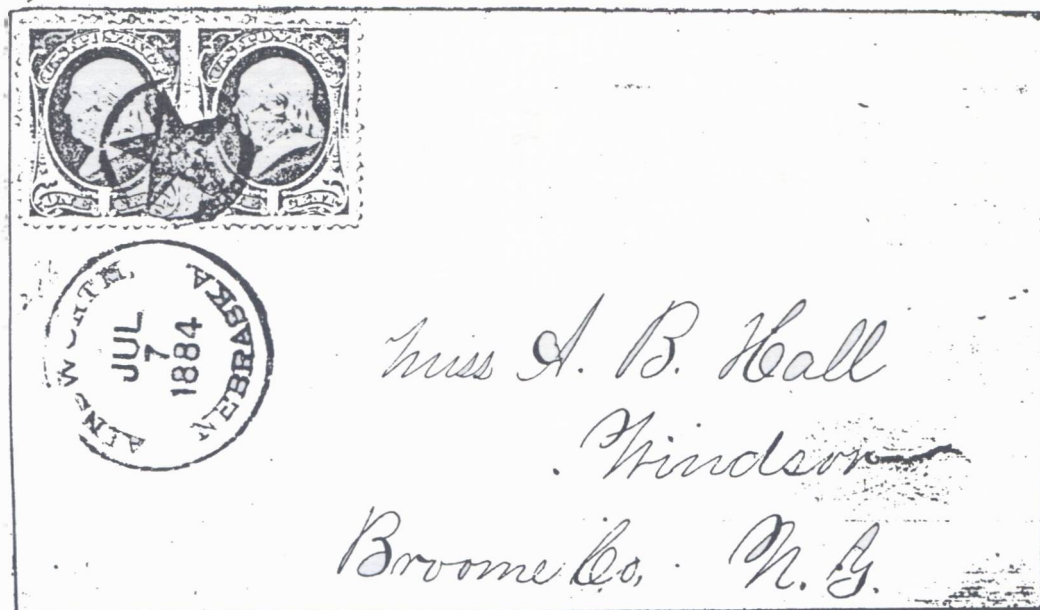 AINSWORTH
NEBRASKA
JUL
7
1884
Miss A. B. Hall
Windsor
Broome Co. N. Y.